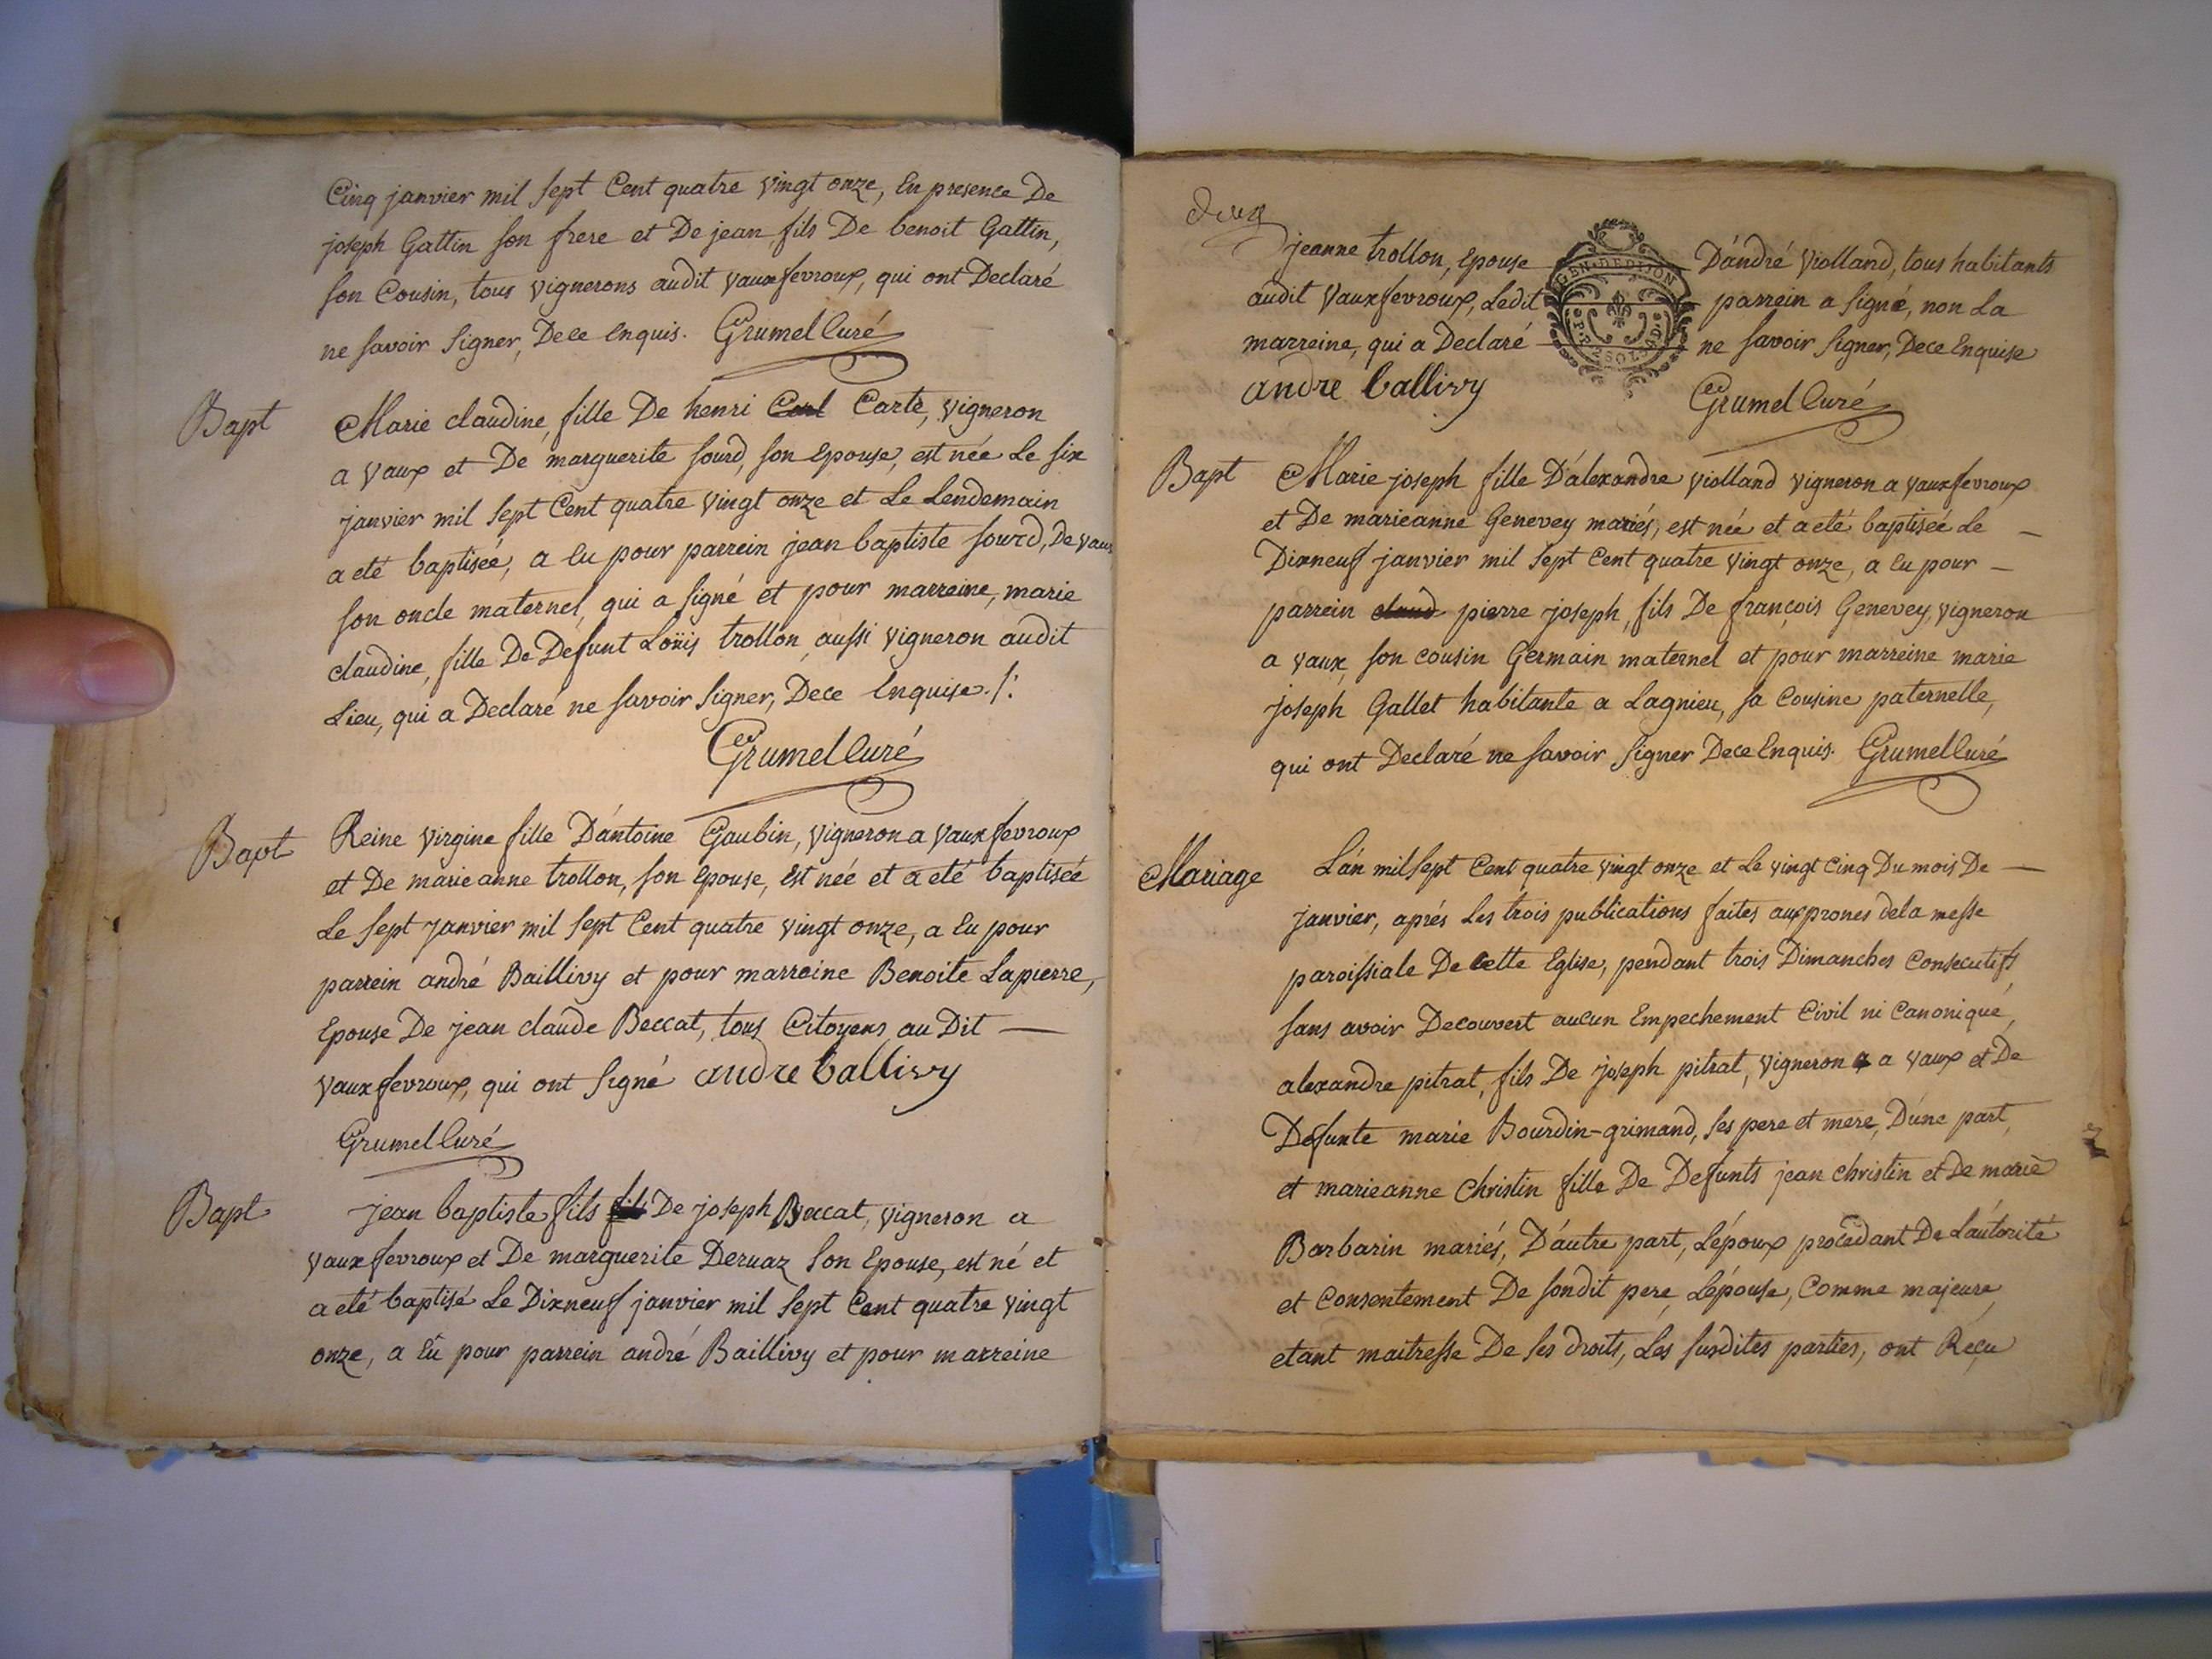 Cinq janvier mil sept Cent quatre vingt onze, En presence De
joseph Gattin son frere et De jean fils De benoit Gattin,
son Cousin, tous vignerons audit vauxfevroux, qui ont Declaré
ne savoir signer, De ce Enquis. Grumel Curé
Bapt Marie claudine, fille De henri Carte, vigneron
a vaux et De marguerite sourd, son Epouse, est née Le six
janvier mil sept Cent quatre vingt onze et Le Lendemain
a eté baptisée, a Eu pour parrein jean baptiste sourd, De vaux
son oncle maternel, qui a signé et pour marreine, marie
claudine, fille De Defunt Loüis trollon aussi vigneron audit
Lieu, qui a Declaré ne savoir signer, Dece Enquise ./:
Grumel Curé
Bapt Reine virgine fille D'antoine Gaubin, vigneron a vauxfevroux
et De marie anne trollon, son Epouse, Est née et a eté baptisée
Le sept janvier mil sept Cent quatre vingt onze, a Eu pour
parrein andré Baillivy et pour marreine Benoite Lapierre,
Epouse De jean claude Beccat, tous Citoyens au Dit —
vauxfevroux, qui ont signé andre ballivy
Grumel Curé
Bapt jean baptiste fils De joseph Beccat, vigneron a
vauxfevroux et De marguerite Deruaz son Epouse, est né et
a eté baptisé Le Dixneuf janvier mil sept Cent quatre vingt
onze, a Eu pour parrein andré Baillivy et pour marreine
deux
jeanne trollon, Epouse D'andré violland, tous habitants
GEN. DE DIJON
audit vauxfevroux, Ledit parrein a signé, non La
marreine, qui a Declaré ne savoir signer, Dece Enquise
andré ballivy Grumel Curé
Bapt Marie joseph fille D'alexandre violland vigneron a vauxfevroux
et De marieanne Genevey mariés, est née et a eté baptisée Le —
Dixneuf janvier mil sept Cent quatre vingt onze, a Eu pour —
parrein claud pierre joseph, fils De françois Genevey, vigneron
a vaux, son cousin Germain maternel et pour marreine marie
joseph Gallet habitante a Lagnieu, sa Cousine paternelle,
qui ont Declaré ne savoir signer Dece Enquis. Grumel Curé
Mariage L'an mil sept Cent quatre vingt onze et Le vingt Cinq Du mois De —
janvier, aprés Les trois publications faites aux prones dela messe
paroissiale De Cette Eglise, pendant trois Dimanches Consecutifs
sans avoir Decouvert aucun Empechement Civil ni Canonique,
alexandre pitrat, fils De joseph pitrat, vigneron a vaux et De
Defunte marie Bourdin-grimand, ses pere et mere, D'une part,
et marieanne Christin fille De Defunts jean christin et De marie
Barbarin mariés, D'autre part, L'époux procedant De L'autorité
et Consentement De sondit pere, L'épouse, Comme majeure,
etant maitresse De ses droits, Les susdites parties, ont Reçu